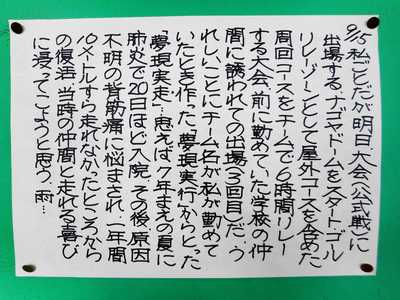 9/15 私ごとだが明日大会(公式戦)に
出場する。ナゴヤドームをスタート、ゴール
リレーゾーンとして屋外コースを含めた
周回コースをチームで6時間リレー
する大会、前に勤めていた学校の仲
間に誘われての出場(3回目)だ。う
れしいことにチーム名が私が勤めて
いたとき作った、“夢現実行”からとった
“夢現実走”…思えば7年まえの夏に
肺炎で20日ほど入院、その後、原因
不明の背筋痛に悩まされ、一年間
10メートルすら走れなかったところから
の復活、当時の仲間と走れる喜び
に浸ってこようと思う。雨…